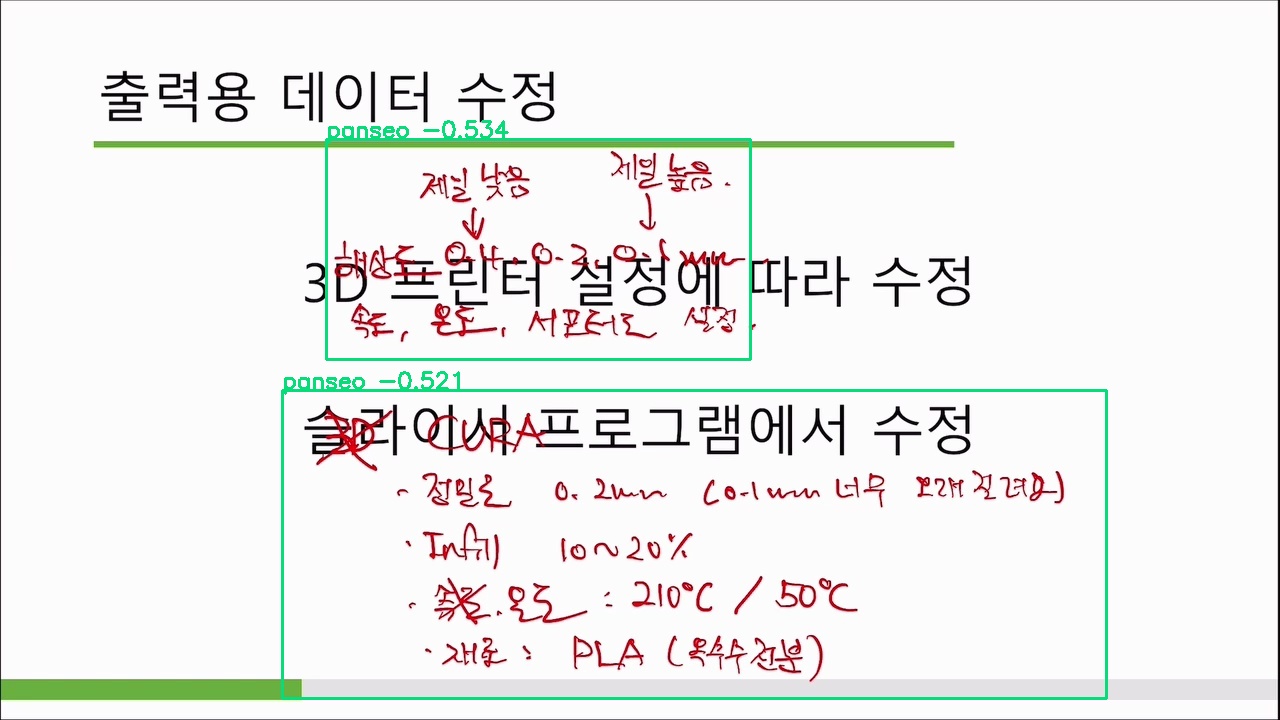 출력용 데이터 수정
panseo -0.534
제일 낮음 제일 높음.
해상도 0.4, 0.2, 0.1mm.
3D 프린터 설정에 따라 수정
속도, 온도, 서포터도 설정.
panseo -0.521
슬라이서 프로그램에서 수정
3D CURA
· 정밀도 0.2mm (0.1mm 너무 오래 걸려요)
· Infill 10~20%
· 속도, 온도 : 210°C / 50°C
· 재료 : PLA (옥수수 전분)